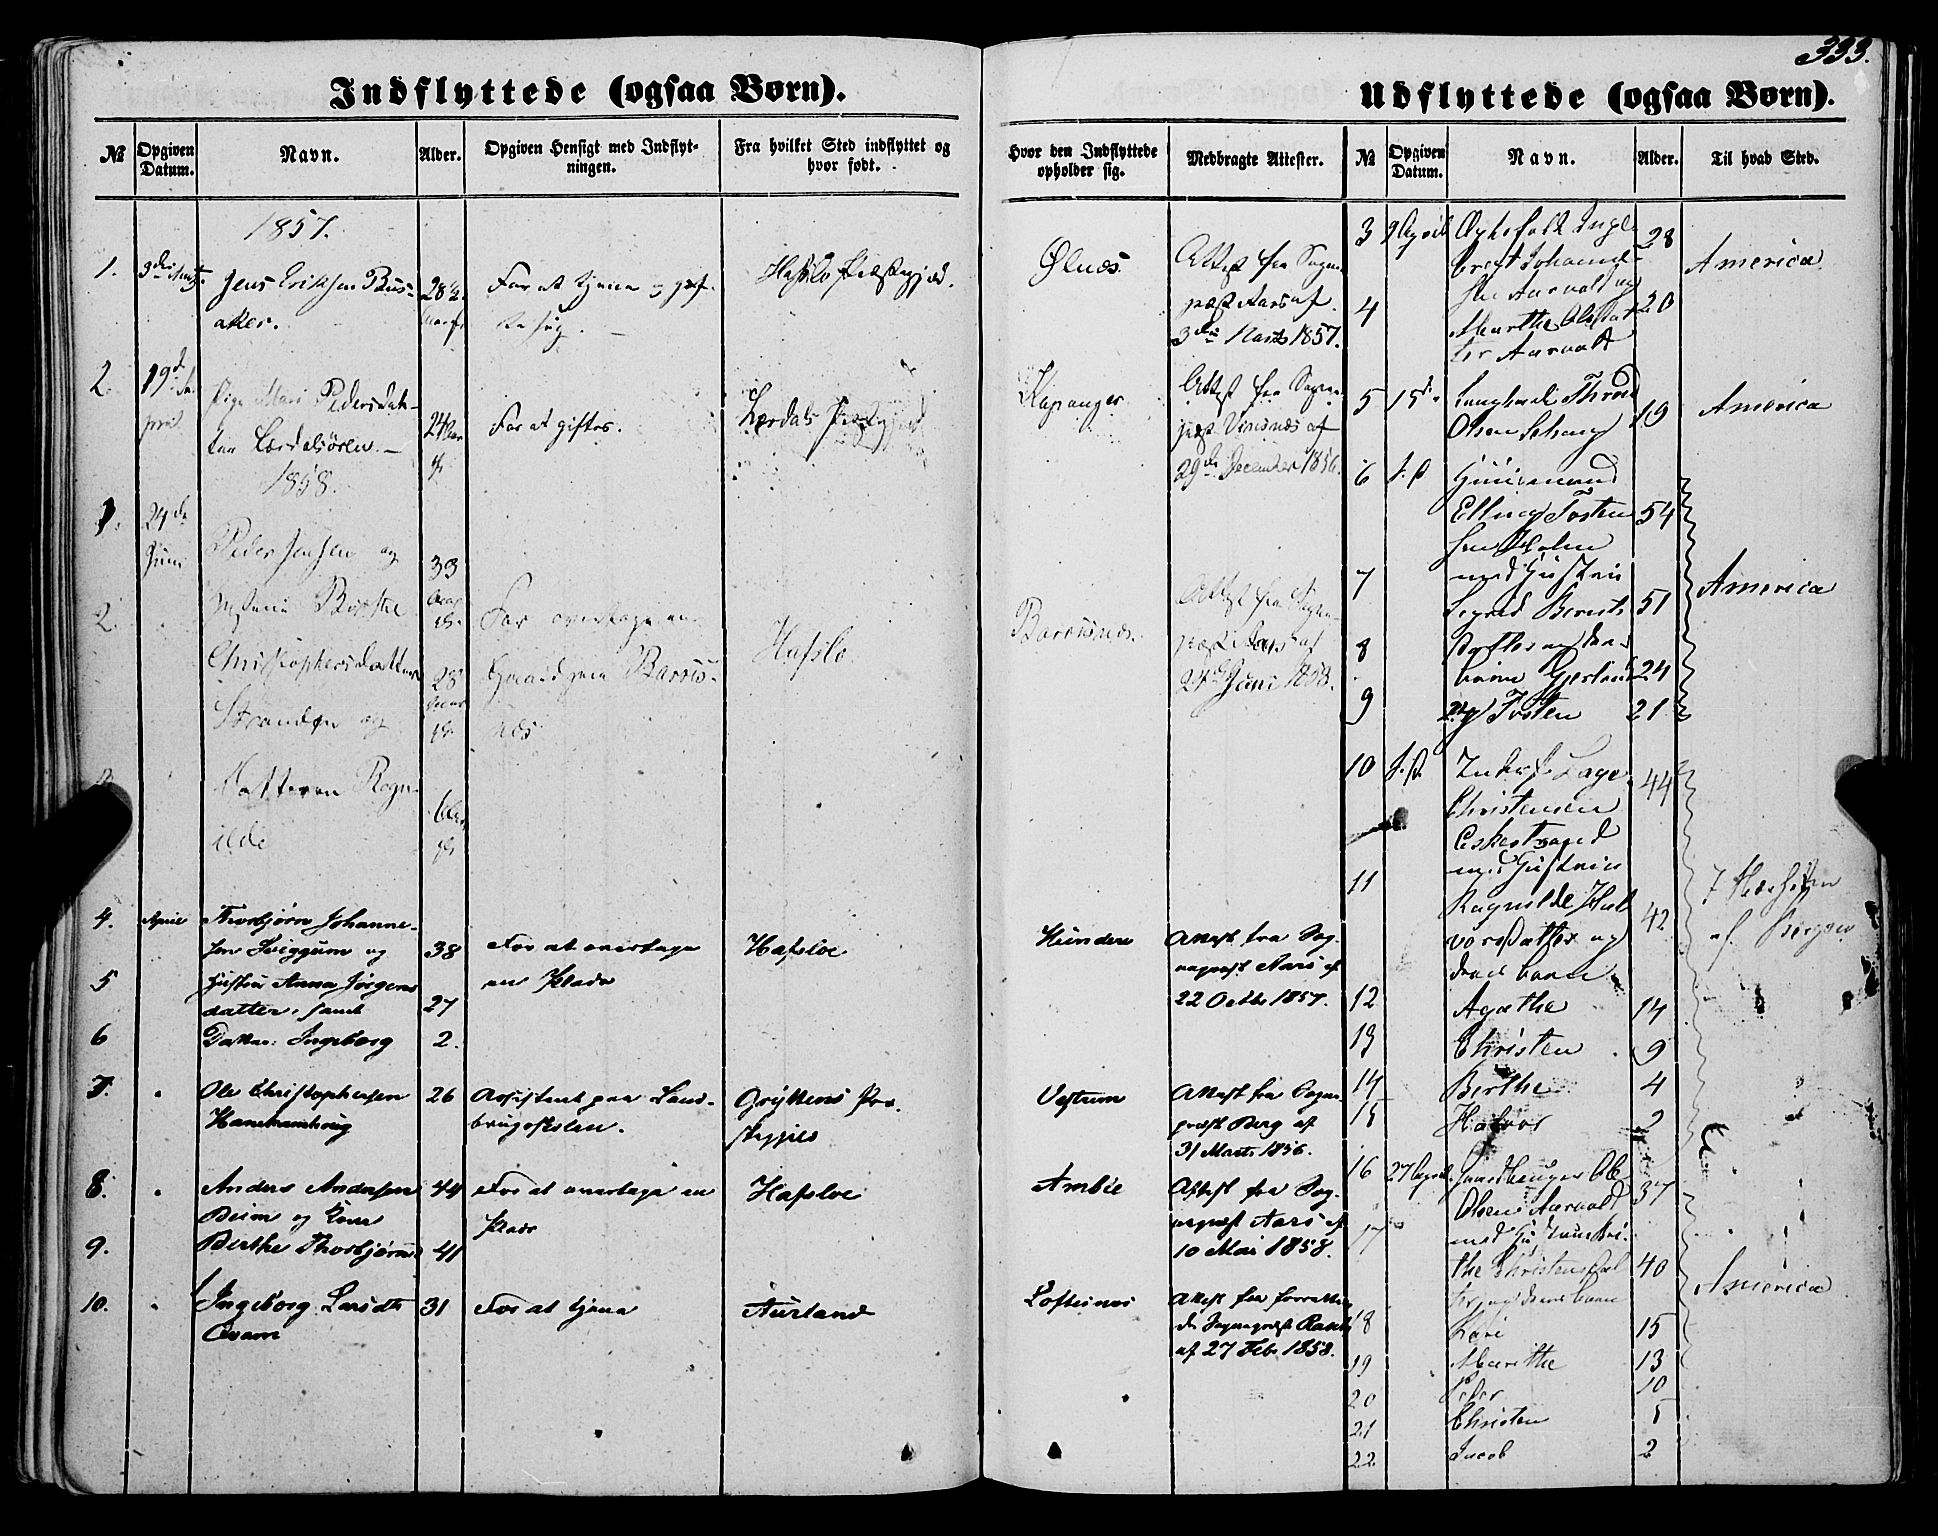 333.
Indflyttede (ogsaa Børn).
№
Opgiven Datum.
Navn.
Alder.
Opgiven Hensigt med Indflyt-
ningen.
Fra hvilket Sted indflyttet og
hvor født.
Hvor den Indflyttede
opholder sig.
Medbragte Attester.
1857.
1.
Jens Eriksen
aker.
28½
For at tjene
Hafslo Præstegjæld.
Ølnæs
Attest fra Sogne-
præst Aars af
3die Marts 1857.
2.
19d
Pige Mari Pedersdat-
ter Lærdalsøren.
24
For at giftes.
Lærdals
Kaupanger
Attest fra Sogne-
præst
29de December 1856.
1858.
1.
24de
Juni
Peder Jensen og
33
2.
Hustru Birthe
Christophersdatter
28
For overtage en
Gaard paa Barsnæs
Hafslo
Barsnæs.
Attest fra Sogne-
præst Aars af
24de Juni 1858.
Datteren Ragn-
ilde
4.
April
Thorbjørn Johanne-
sen Sviggum og
38
For at overtage
en Plads
Hafsloe
Hundere
Attest fra Sog-
nepræst Aars af
22 Octbr 1857.
5
Hustru Anna Jørgens
datter, samt
27
6
Datter: Ingeborg
2.
7.
Ole Christophersen
26
Assistent paa Land-
brugsskolen.
Gryttens Præ-
stegjeld
Vestrum
Attest fra Sogne-
præst Berg af
31 Marts 1856.
8.
Anders Andersen
Beim og Kone
44
For at overtage en
Plads
Hafsloe
AmbLe
Attest fra Sog-
nepræst Aars af
10 Mai 1858.
9.
Berthe Thorbjørns
41
10.
Ingeborg Larsdtr
Qvam
31
For at tjene
Aurland
Loftesnes
Attest fra forrette-
de Sognepræst
af 27 Feb 1858.
Udflyttede (ogsaa Børn).
№
Opgiven Datum.
Navn.
Alder.
Til hvad Sted.
3
9 April
Ægtefolk Inge-
brigt Johanne-
sen Aaroald og
28
America
4
Marthe Olsdat-
ter Aarvold
20
5
15d
Ungkarl
Olsen
19
America
6
Huusmand
Elling Tosten
sen Holen
54
7
med Hustru
Sigrid Berents
51
America
8
datter og deres
børn Gjertrud
24
9
og Tosten
21
10
Inderst Lage
Christensen
Eskestrand
44
11
med Hustru
Ragnilde Hal
vorsdatter og
deres børn
42
af Bergen
12
Agathe
14
13
Christen
9
14
Berthe
4
15
Halvor
2
16
27 April
Ole
Olsen Aarvold
37
17
med Hustru Bri-
the Christensdat
ter og deres børn
40
America
18
Kari
15
19
Marithe
13
20
Peder
10
21
Christen
5
22
Jacob
2